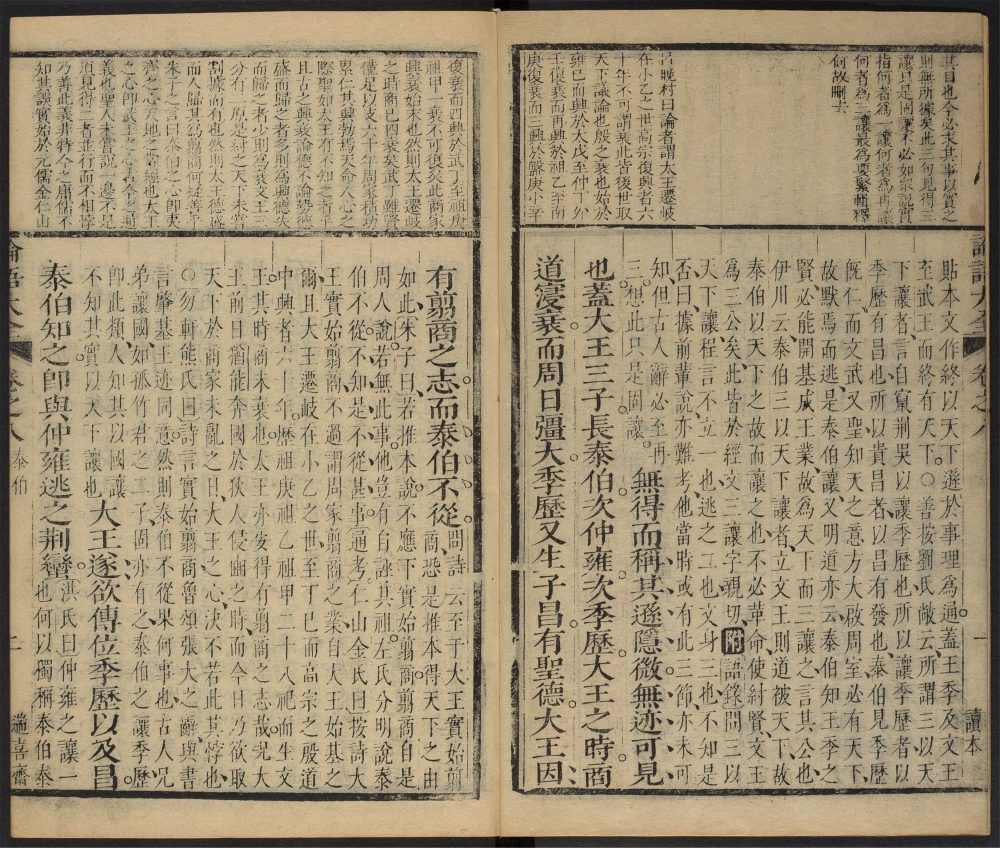 其目也今必求其事以實之
則無所據矣此三句見得三
讓只是固讓不必如衆說實
指何者為一讓何者為再讓
何者為三讓最為要緊輯釋
何故刪去
呂晚村曰論者謂太王遷岐
在小乙之世高宗復興者六
十年不可謂衰此皆後世取
天下議論也殷之衰也始於
雍巳而興於大戊至仲丁外
壬復衰而再興於祖乙至南
庚復衰而三興於盤庚小辛
論語大全
卷之八
一
讀本
貼本文作終以天下遜於事理為通蓋王季及文王
至武王而終有天下○善按劉氏敞云所謂三以天
下讓者言自竄荆吳以讓季歷也所以讓季歷者以
季歷有昌也所以貴昌者以昌有發也泰伯見季歷
旣仁而文武又聖知天之意方大啟周室必有天下
故默焉而逃是泰伯讓又明道亦云泰伯知王季之
賢必能開基成王業故為天下而三讓之言其公也
伊川云泰伯三以天下讓者立文王則道被天下故
泰伯以天下之故而讓之也不必革命使紂賢文王
為三公矣此皆於經文三讓字親切附語錄問三以
天下讓程言不立一也逃之二也文身三也不知是
否曰據前輩說亦難考他當時或有此三節亦未可
知但古人辭必至再
三想此只是固讓
無得而稱其遜隱微無迹可見
也蓋大王三子長泰伯次仲雍次季歷大王之時商
道寖衰而周日彊大季歷又生子昌有聖德大王因
復衰而四興於武丁至祖庚
祖甲一衰不可復矣此商家
興衰始末也然則太王遷岐
之時商已四衰矣武丁雖賢
僅足以支六十年周家積功
累仁其興勃焉天命人心之
際聖如太王有不知之者乎
且古之興衰論德不論勢德
盛而歸之者多則為興德失
而歸之者少則為衰文王三
分有二原是紂之天下未嘗
割據而有也然則太王德盛
而人歸其為翦商何疑善乎
朱子之言曰泰伯之心卽夷
齊之心天地之常經也大王
之心卽武王之心古今之通
義也聖人未嘗說一邊不是
須見得二者並行而不相悖
乃善此義非特今之庸儒不
知其誤實始於元儒金仁山
有翦商之志而泰伯不從
問詩云至于大王實始翦
商恐是推本得天下之由
如此朱子曰若推本說不應下實始翦商翦商自是
周人說若無此事他豈有自誣其祖左氏分明說泰
伯不從不知是不從甚事通考仁山金氏曰按詩大
王實始翦商不過謂周家翦商之業自大王始基之
爾且大王遷岐在小乙之世至丁巳而高宗之殷道
中興者六十年歷祖庚祖乙祖甲二十八祀而生文
王其時商未衰也太王亦安得有翦商之志哉况大
王前日猶能奔國於狄人侵豳之時而今日乃欲取
天下於商家未亂之日大王之心決不若此其悖也
○勿軒熊氏曰詩言實始翦商魯頌張大之辭與書
言肇基王迹同意然則泰伯不從果何事也古人兄
弟讓國如孤竹君之二子固亦有之泰伯之讓季歷
卽此類人知其以國讓
不知其實以天下讓也
大王遂欲傳位季歷以及昌
泰伯知之卽與仲雍逃之荆蠻
洪氏曰仲雍之讓一
也何以獨稱泰伯泰
論語大全
卷之八
泰伯
二
遄喜齋